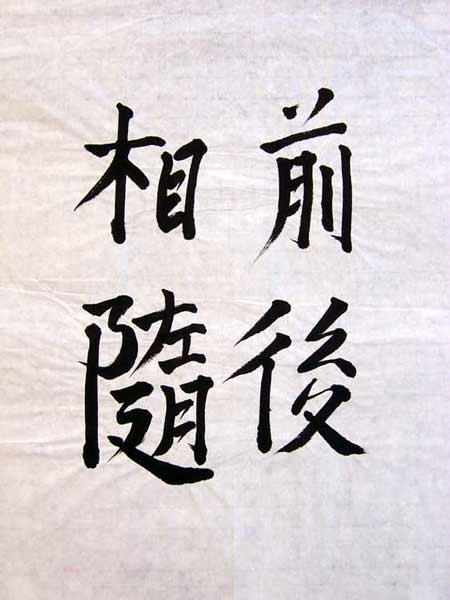 前後
相隨